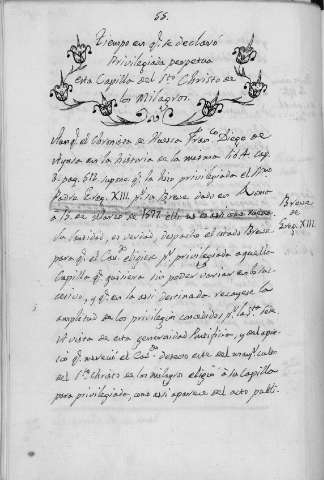 55.
Tiempo en q.e se declaró
Privilegiada perpetua
esta Capilla del S.to Christo de
los Milagros.
Aunq.e el Coronista de Nuestro Fran.co Diego de
en la historia de la misma lib. 4 cap.
8. pag. 512. supone q.e la hizo privilegiada el
Padre Greg. XIII p.r su Breve dado en Roma
a 15. de Marzo de 1577
Su Santidad, es verdad, despachó el citado Breve
para q.e el Con.to eligiese p.r privilegiada aquella
Capilla q.e quisiera sin poder variar en lo suc-
cesivo, y q.e en la asi destinada recayese la
de los privilegios concedidos p.r la S.ta Sede.
A vista de esta generosidad Pontificia, y
q.e mereció el Con.to deseoso este del mayor culto
del S.to Christo de los Milagros eligió a la Capilla
para privilegiada, como asi aparece del acto publi-
Breve
de
Greg. XIII